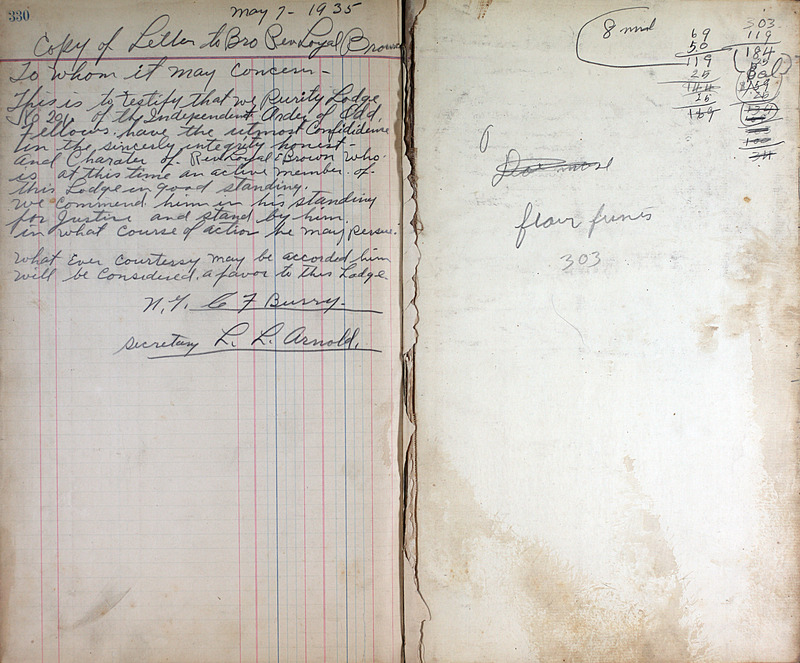 330
May 7 - 1935
Copy of Letter to Bro Rev Loyal Brown
To Whom it may Concern -
This is to testify that we Purity Lodge
No of the Independent Order of Odd,
Fellows have the utmost Confididence
in the sincerly integrity honest -
and Charater of Rev Loyal Brown Who
is at this time an active member of
this Lodge in good standing.
we commend him in his standing
for Justice and stand by him.
in what course of action he may persue.
What Ever Courtersy may be accorded him
will be Considered, a favor to this Lodge.
N. G. C F Burry
secretary L. L. Arnold.
8
69
50
119
25
144
25
169
303
119
184
Bal
flour funis
303